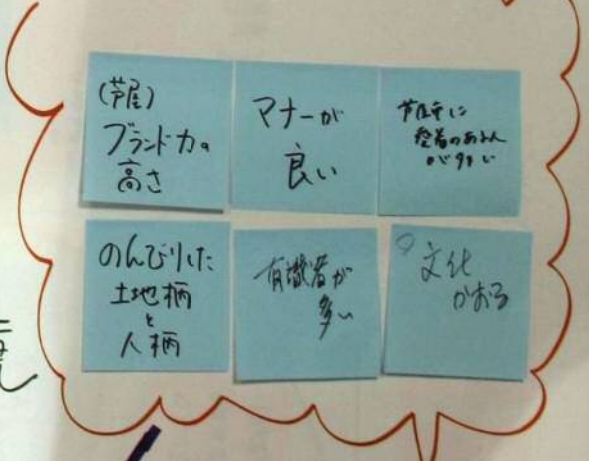 (芦屋)
ブランド力の
高さ
マナーが
良い
芦屋市に
愛着のある人
が多い
のんびりした
土地柄
と
人柄
有識者が
多い
文化
かおる